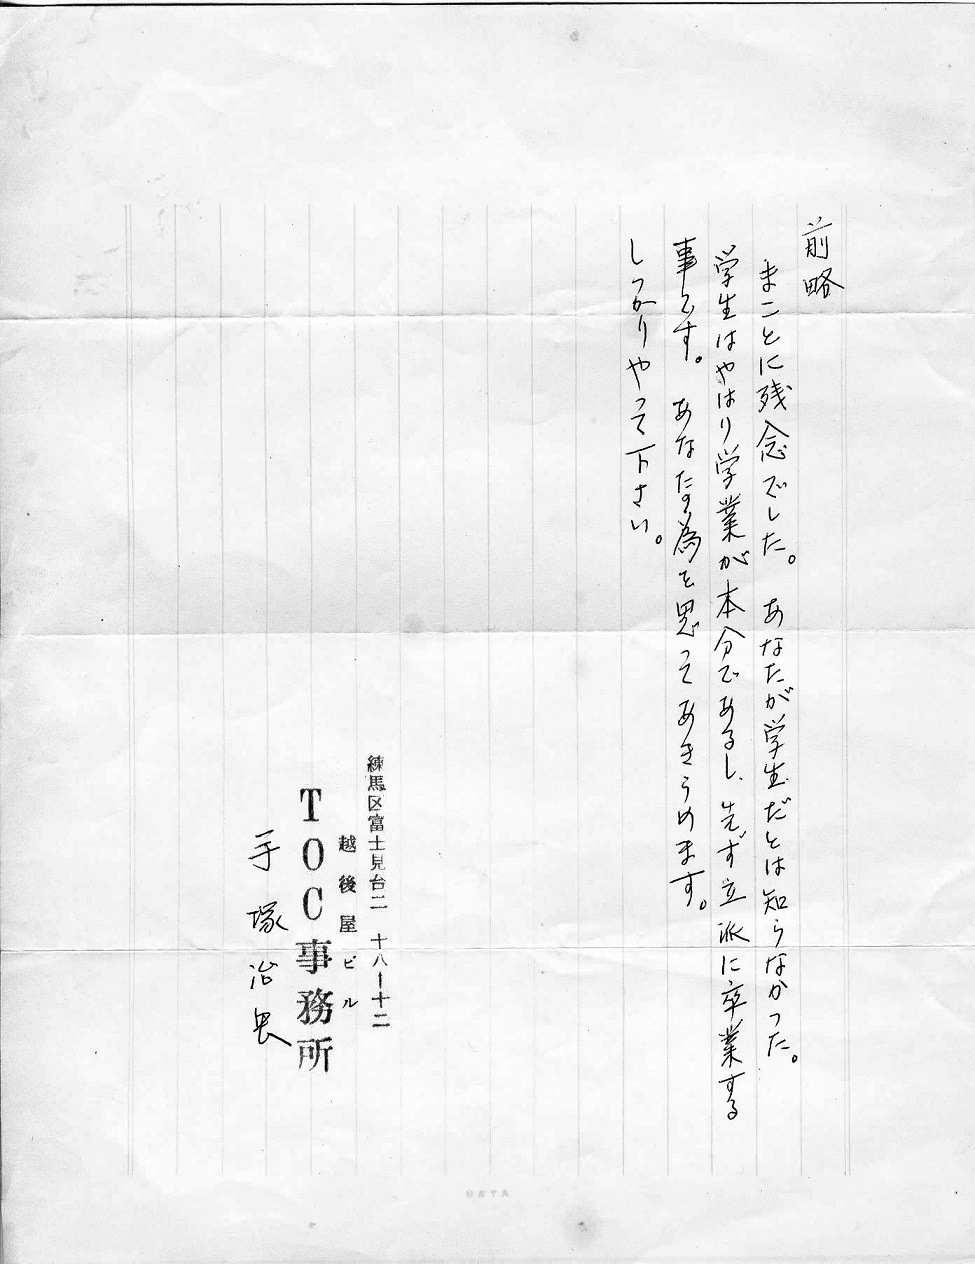 前略
まことに残念でした。あなたが学生だとは知らなかった。
学生はやはり学業が本分であるし、先ず立派に卒業する
事です。あなたの為を思ってあきらめます。
しっかりやって下さい。
練馬区富士見台二ノ十八ー十二
越後屋ビル
TOC事務所
手塚治虫